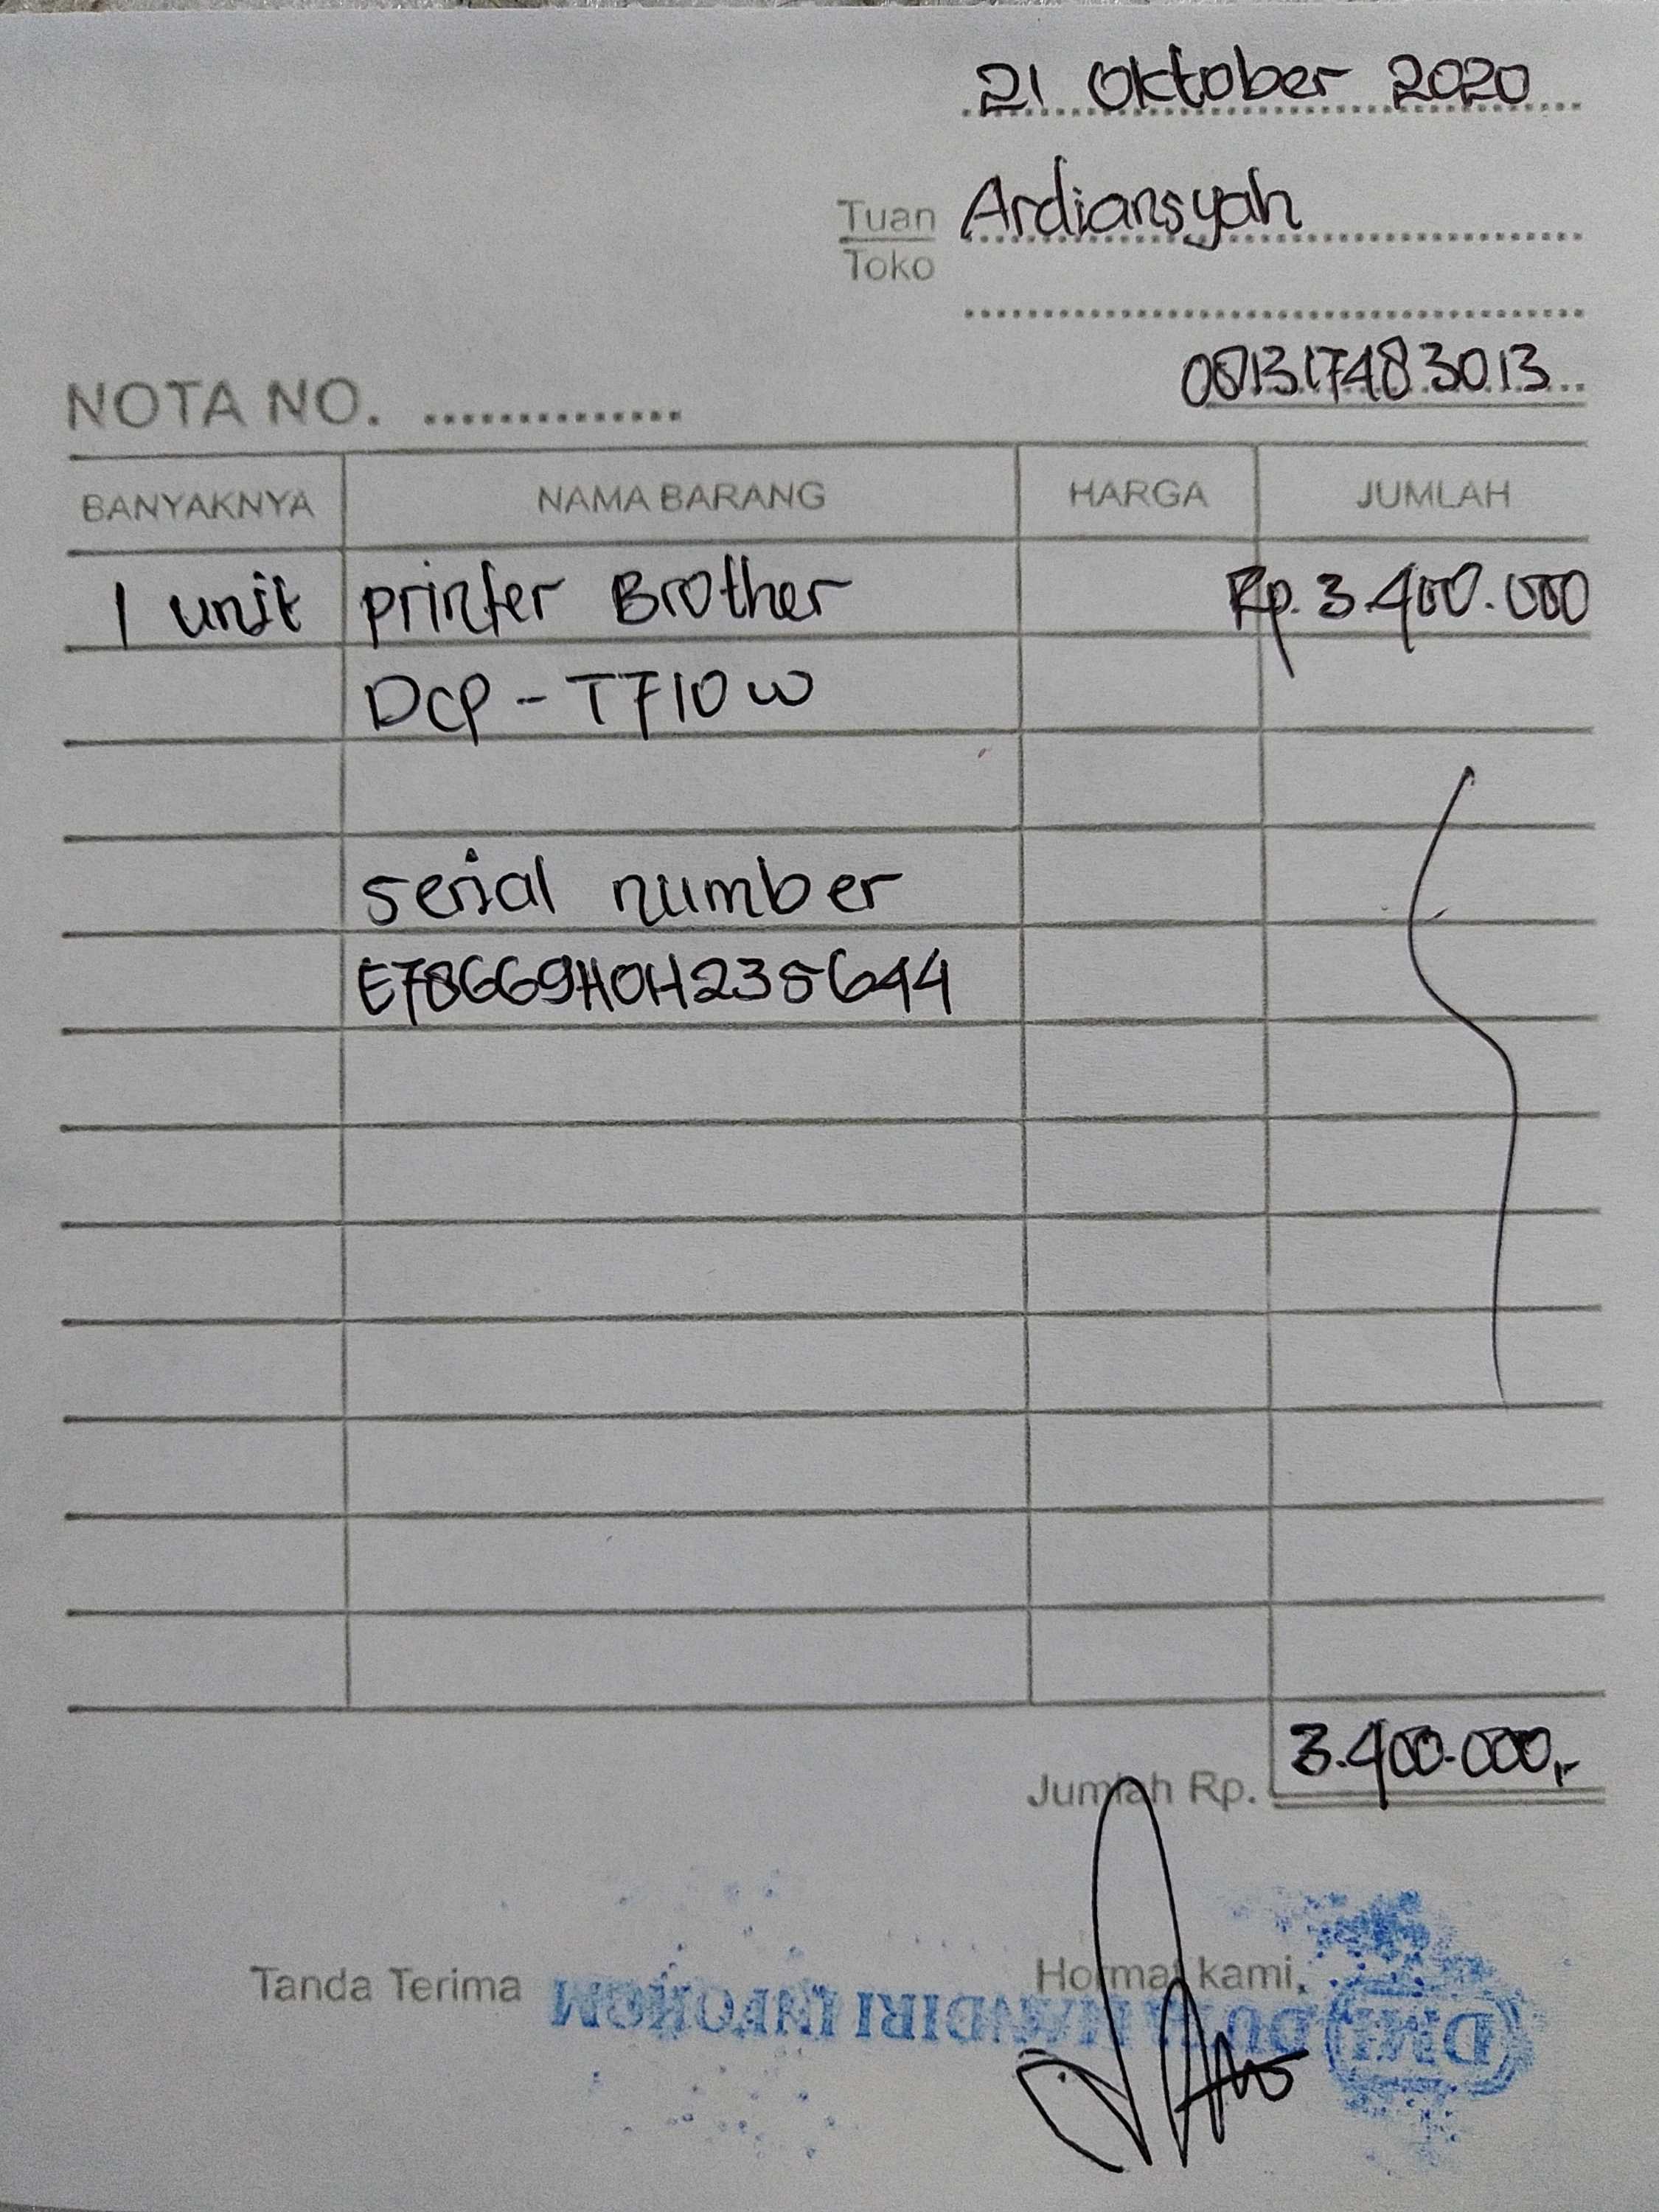 21 Oktober 2020
Tuan Ardiansyah
Toko
081317483013
NOTA NO. ..............
BANYAKNYA NAMA BARANG HARGA JUMLAH
1 unit printer Brother Rp. 3.400.000
DCP - T710W
serial number
E78669H0H235644
Jumlah Rp. 3.400.000,-
Tanda Terima Hormat kami,
DMI DUTA MANDIRI INFOKOM